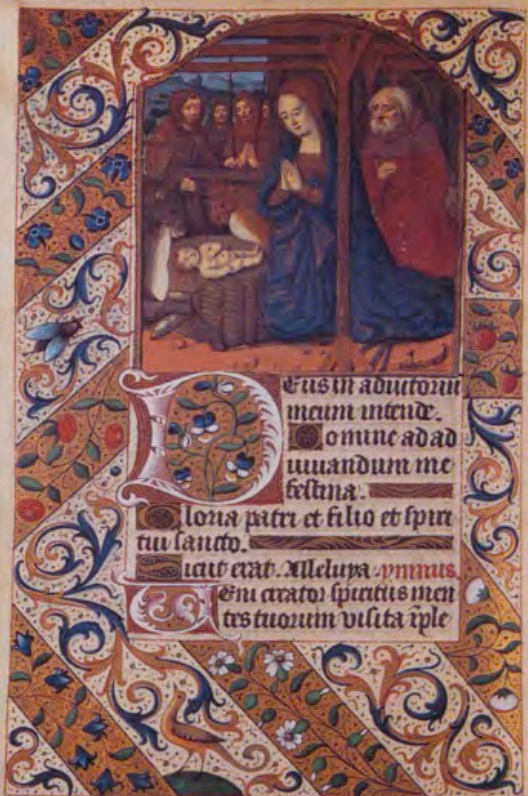 Deus in adiutoriu
meum intende.
Domine ad ad
iuuandum me
festina.
Gloria patri et filio et spiri
tui sancto.
Sicut erat. Alleluya. ymnus.
Veni creator spiritus men
tes tuorum visita īple